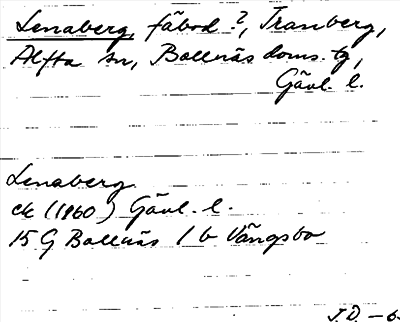 Lenaberg, fäbod ?, Tranberg,
Alfta sn, Bollnäs doms. tg,
Gävl. l.
Lenaberg
ek (1960) Gävl. l.
15 G Bollnäs 1 b Vängsbo
J.D. – 6